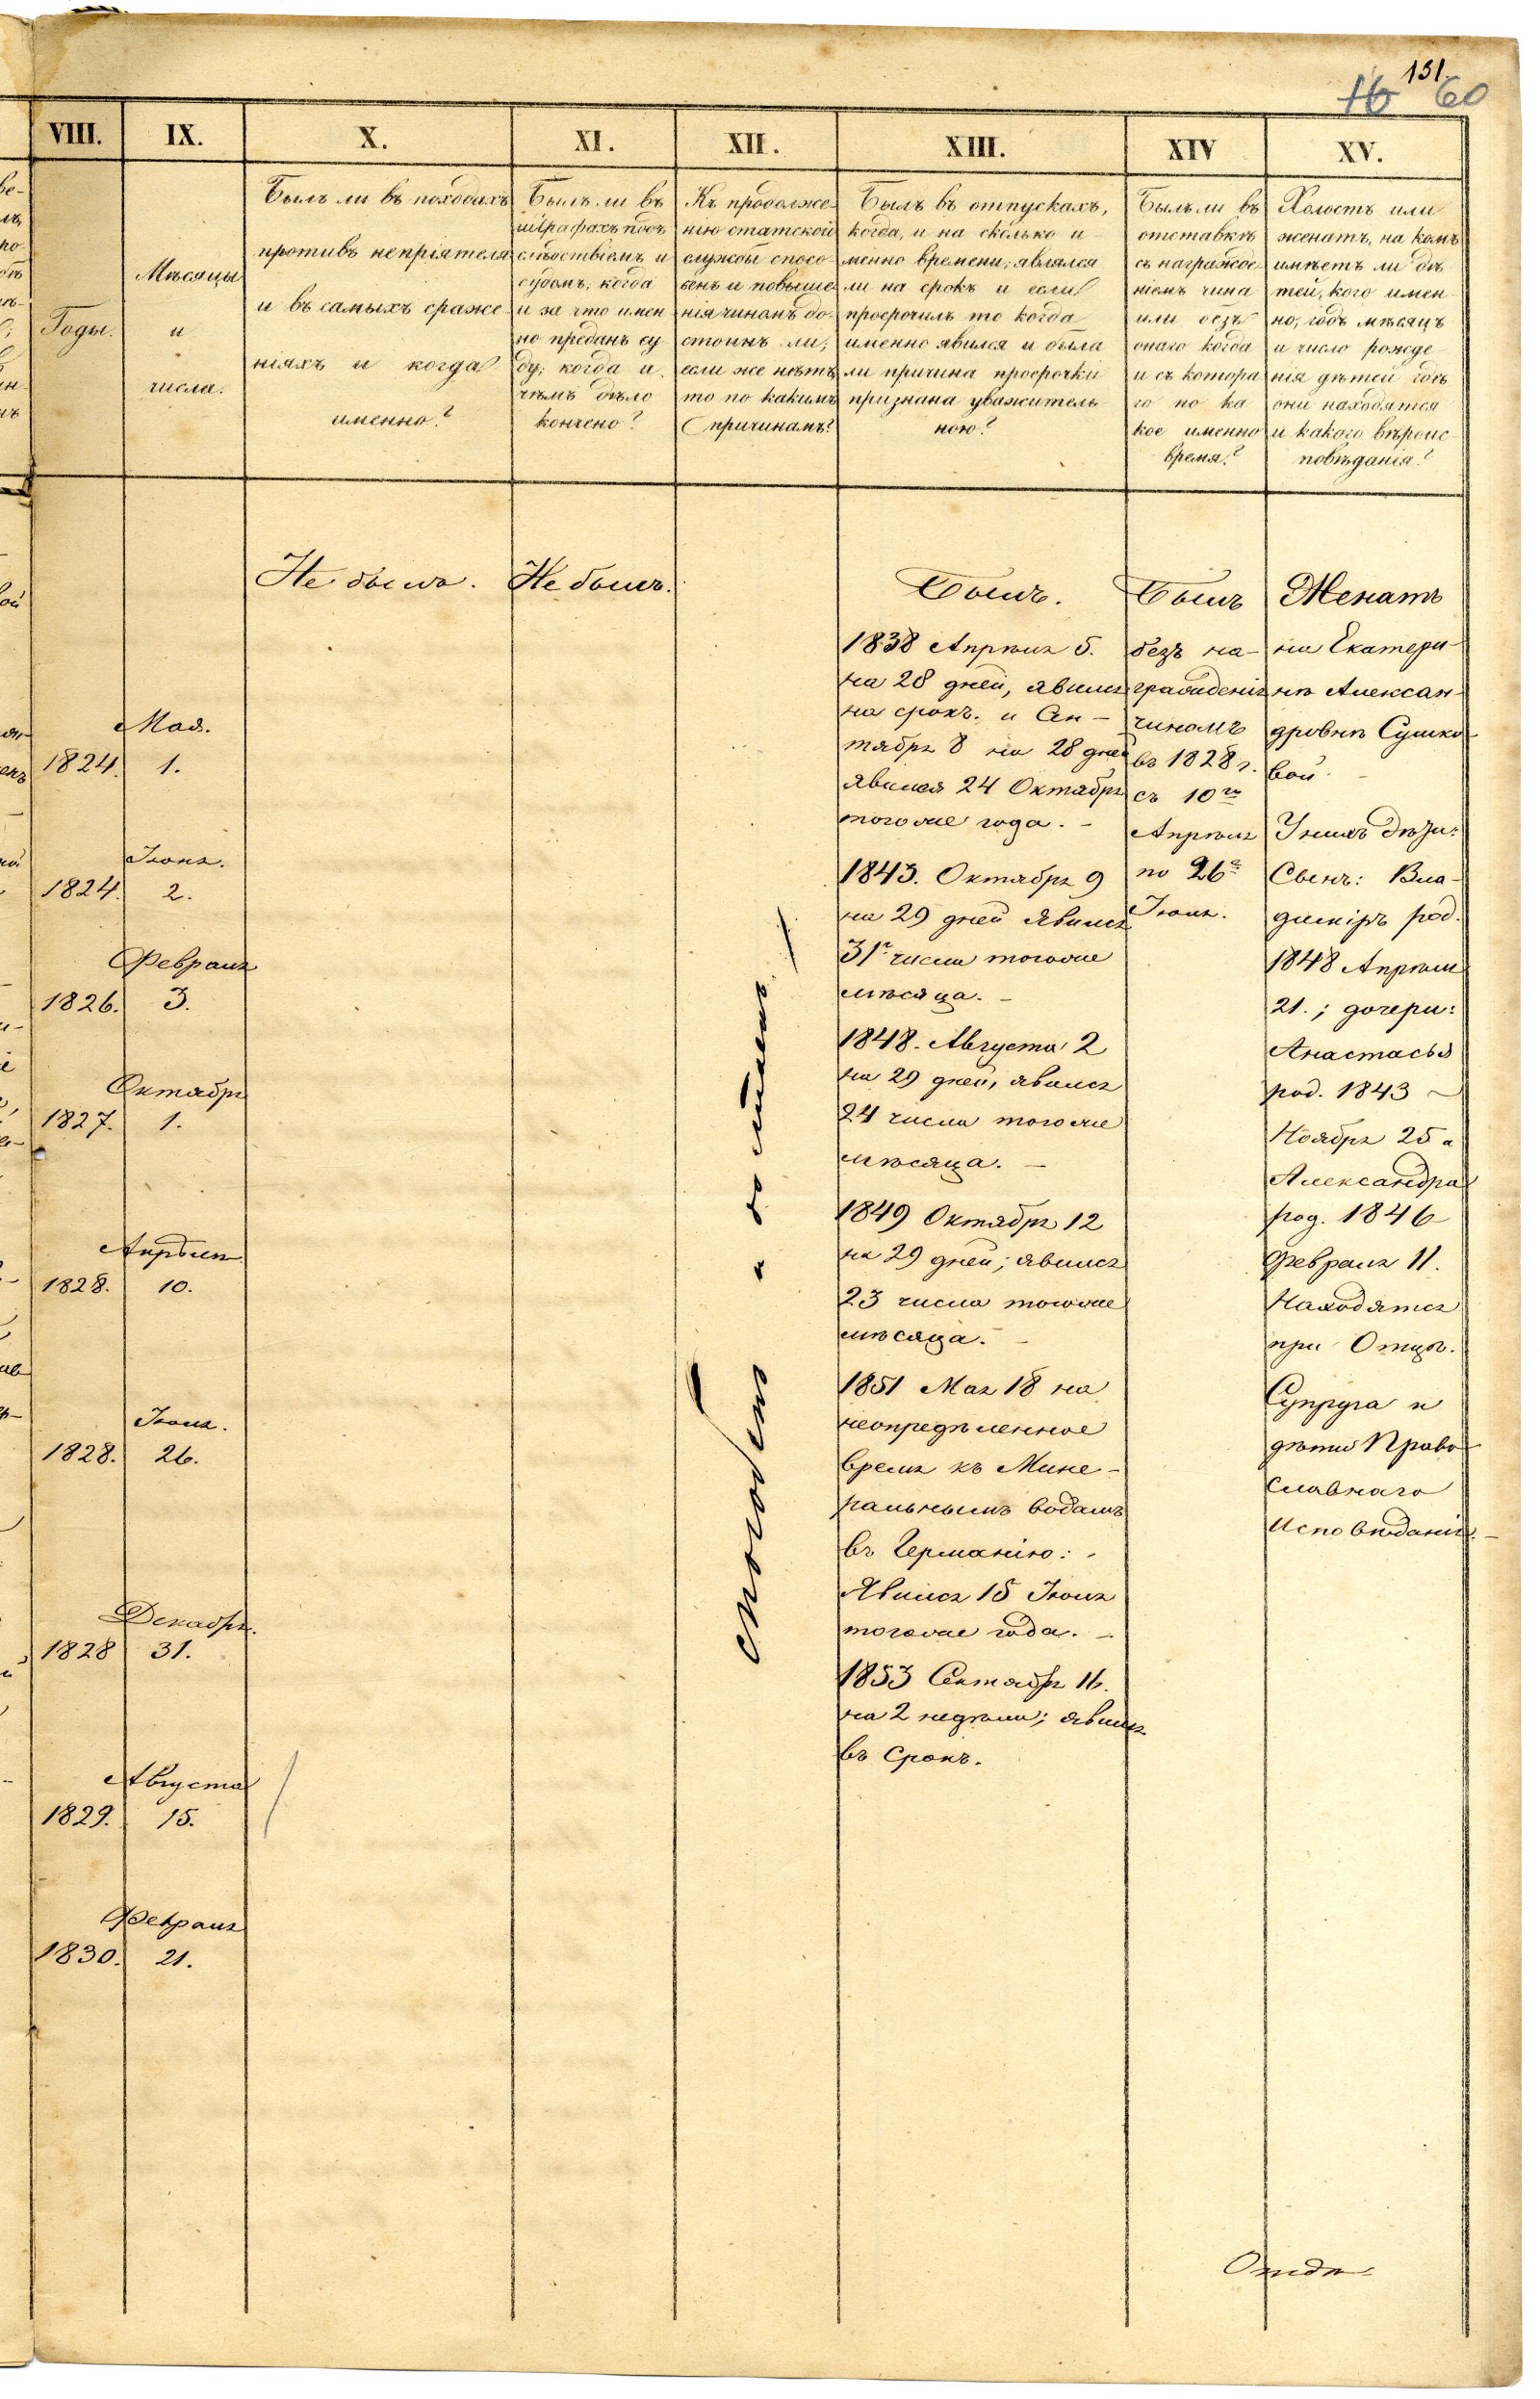 131.
16 60
VIII.
IX.
X.
XI.
XII.
XIII.
XIV
XV.
Годы.
Мѣсяцы
и
числа.
Былъ ли въ походахъ
противъ непріятеля
и въ самыхъ сраже
ніяхъ и когда
именно?
Былъ ли въ
штрафахъ подъ
слѣдствіемъ и
судомъ; когда
и за что имен
но преданъ су
ду; когда и
чѣмъ дѣло
кончено?
Къ продолже-
нію статской
службы спосо-
бенъ и повыше
нія чиномъ до-
стоинъ ли;
если же нѣтъ
то по какимъ
причинамъ?
Былъ въ отпускахъ,
когда, и на сколько и-
менно времени; являлся
ли на срокъ и если
просрочилъ то когда
именно явился и была
ли причина просрочки
признана уважитель-
ною?
Былъ ли въ
отставкѣ
съ награжде-
ніемъ чина
или безъ
онаго когда
и съ котора
го по ка
кое именно
время?
Холостъ или
женатъ, на комъ
имѣетъ ли дѣ
тей, кого имен-
но; годъ мѣсяцъ
и число рожде-
нія дѣтей гдѣ
они находятся
и какого вѣроис-
повѣданія?
Мая.
1824. 1.
Іюня.
1824. 2.
Февраля
1826. 3.
Октября
1827. 1.
Апрѣля
1828. 10.
Іюля.
1828. 26.
Декабря.
1828 31.
Августа
1829. 15.
Февраля
1830. 21.
Не былъ.
Не былъ.
способенъ и достоинъ
Былъ.
1838 Апрѣля 5.
на 28 дней, явился
на срокъ. и Сен-
тября 8 на 28 дней
явился 24 Октября
тогоже года. -
1843. Октября 9
на 29 дней явился
31го числа тогоже
мѣсяца. -
1848. Августа 2
на 29 дней, явился
24 числа тогоже
мѣсяца. -
1849 Октября 12
на 29 дней; явился
23 числа тогоже
мѣсяца. -
1851 Мая 18 на
неопредѣленное
время къ Мине-
ральнымъ водамъ
въ Германію: -
Явился 15 Іюля
тогоже года. -
1853 Сентября 16.
на 2 недѣли; явился
въ срокъ.
Былъ
безъ на-
гражденія
чиномъ
въ 1828 г.
съ 10го
Апрѣля
по 26е
Іюля.
Женатъ
на Екатери-
нѣ Алексан-
дровнѣ Сушко-
вой. -
У нихъ дѣти:
Сынъ: Вла-
диміръ род.
1848 Апрѣля
21.; дочери:
Анастасья
род. 1843 -
Ноября 25 и
Александра
род. 1846
Февраля 11.
Находятся
при Отцѣ.
Супруга и
дѣти Право-
славнаго
Исповѣданія. -
Отдѣ-